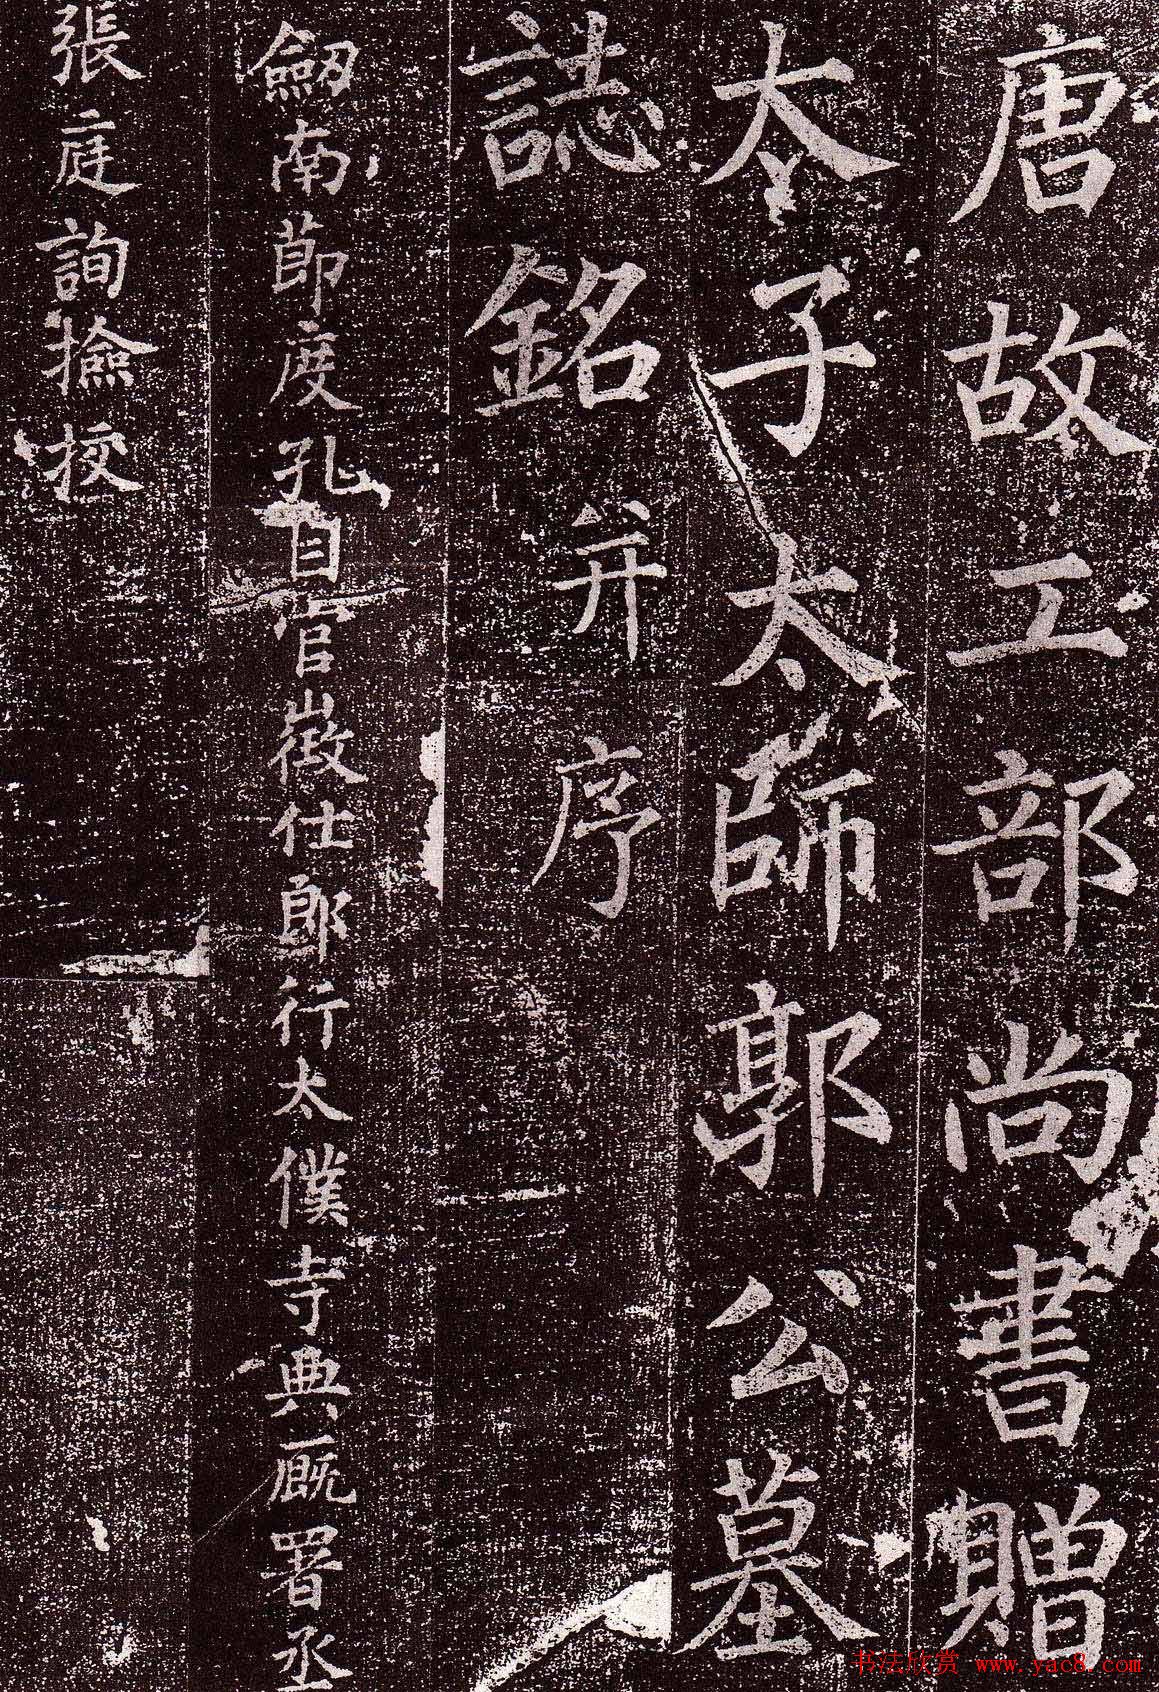 唐故工部尚書贈
太子太師郭公墓
誌銘并序
劒南節度孔目官徵仕郎行太僕寺典廐署丞
張庭詢撿挍
书法欣赏 www.yac8.com